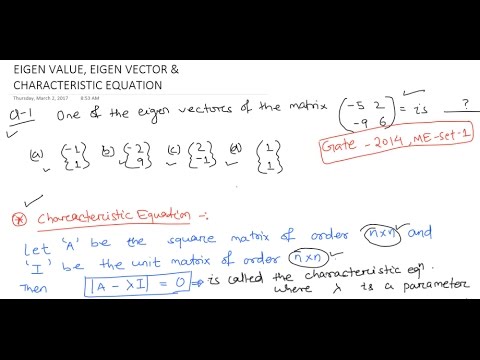 EIGEN VALUE, EIGEN VECTOR &
CHARACTERISTIC EQUATION
Thursday, March 2, 2017 8:53 AM
Q-1 One of the eigen vectores of the matrix (-5 2 -9 6) = is ?
(a) (-1 1) b) (-2 9) (c) (2 -1) (d) (1 1)
Gate - 2014, ME-set-1
* Charcacteristic Equation -:
Let 'A' be the square matrix of order n×n and
'I' be the unit matrix of order n×n
Then |A - λI| = 0 → is called the characteristic eqn.
where λ is a parameter